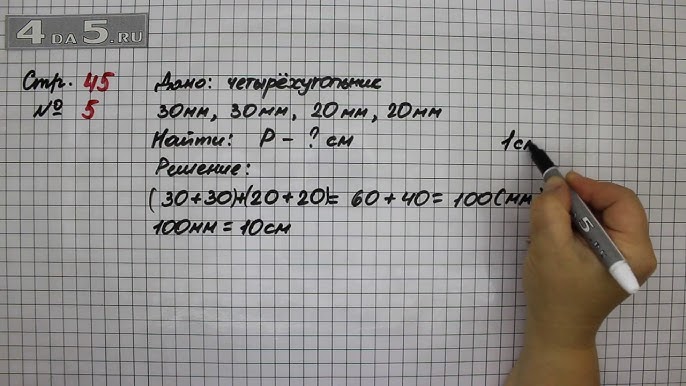 4 DA 5.RU
Стр. 45
№ 5
Дано: четырёхугольник
30мм, 30мм, 20мм, 20мм
Найти: P - ? см
Решение:
(30+30)+(20+20)= 60+40= 100(мм)
100мм = 10см
1см
5